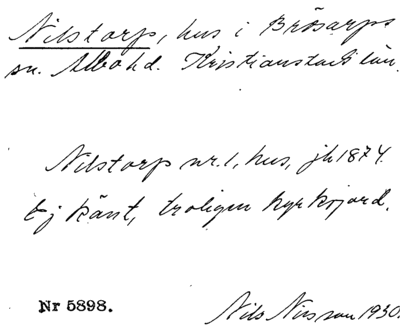 Nilstorp, hus i Brösarps
sn. Albo hd. Kristianstads län.
Nilstorp nr. 1, hus, jb 1874.
Ej känt, troligen kyrkojord.
Nr 5898.
Nils Nilsson 1930.